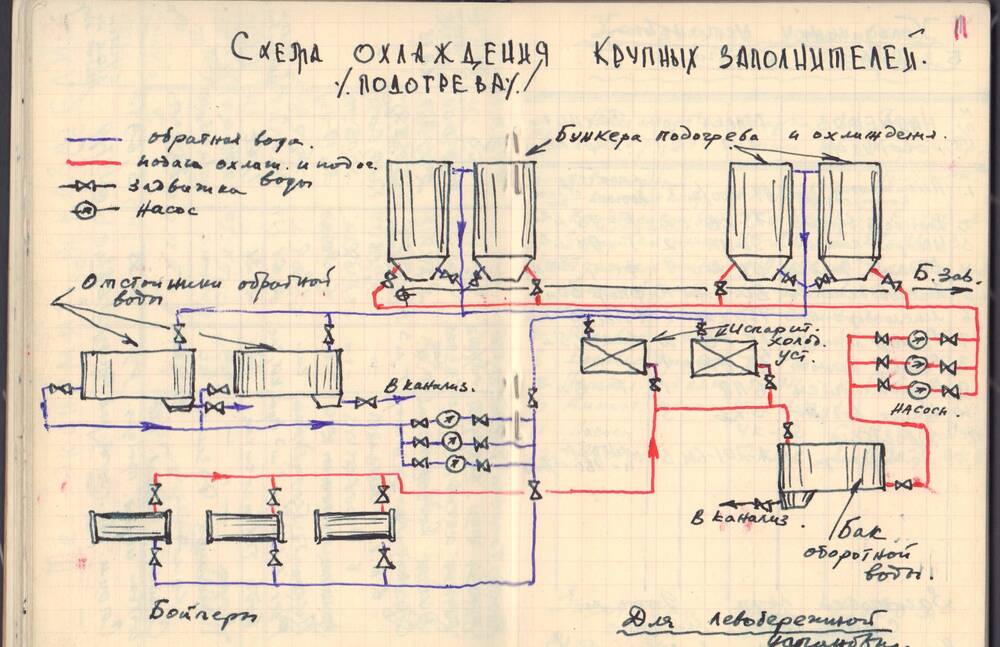 Схема охлаждения крупных заполнителей.
/подогрева/
обратная вода.
подача охлаж. и подог.
воды
задвижка
насос
Бункера подогрева и охлаждения.
Б. зав.
Отстойники обратной
воды
Испарит.
холод.
уст.
В канализ.
насосы
В канализ.
Бак
оборотной
воды.
Бойлеры
Для левобережной
установки.